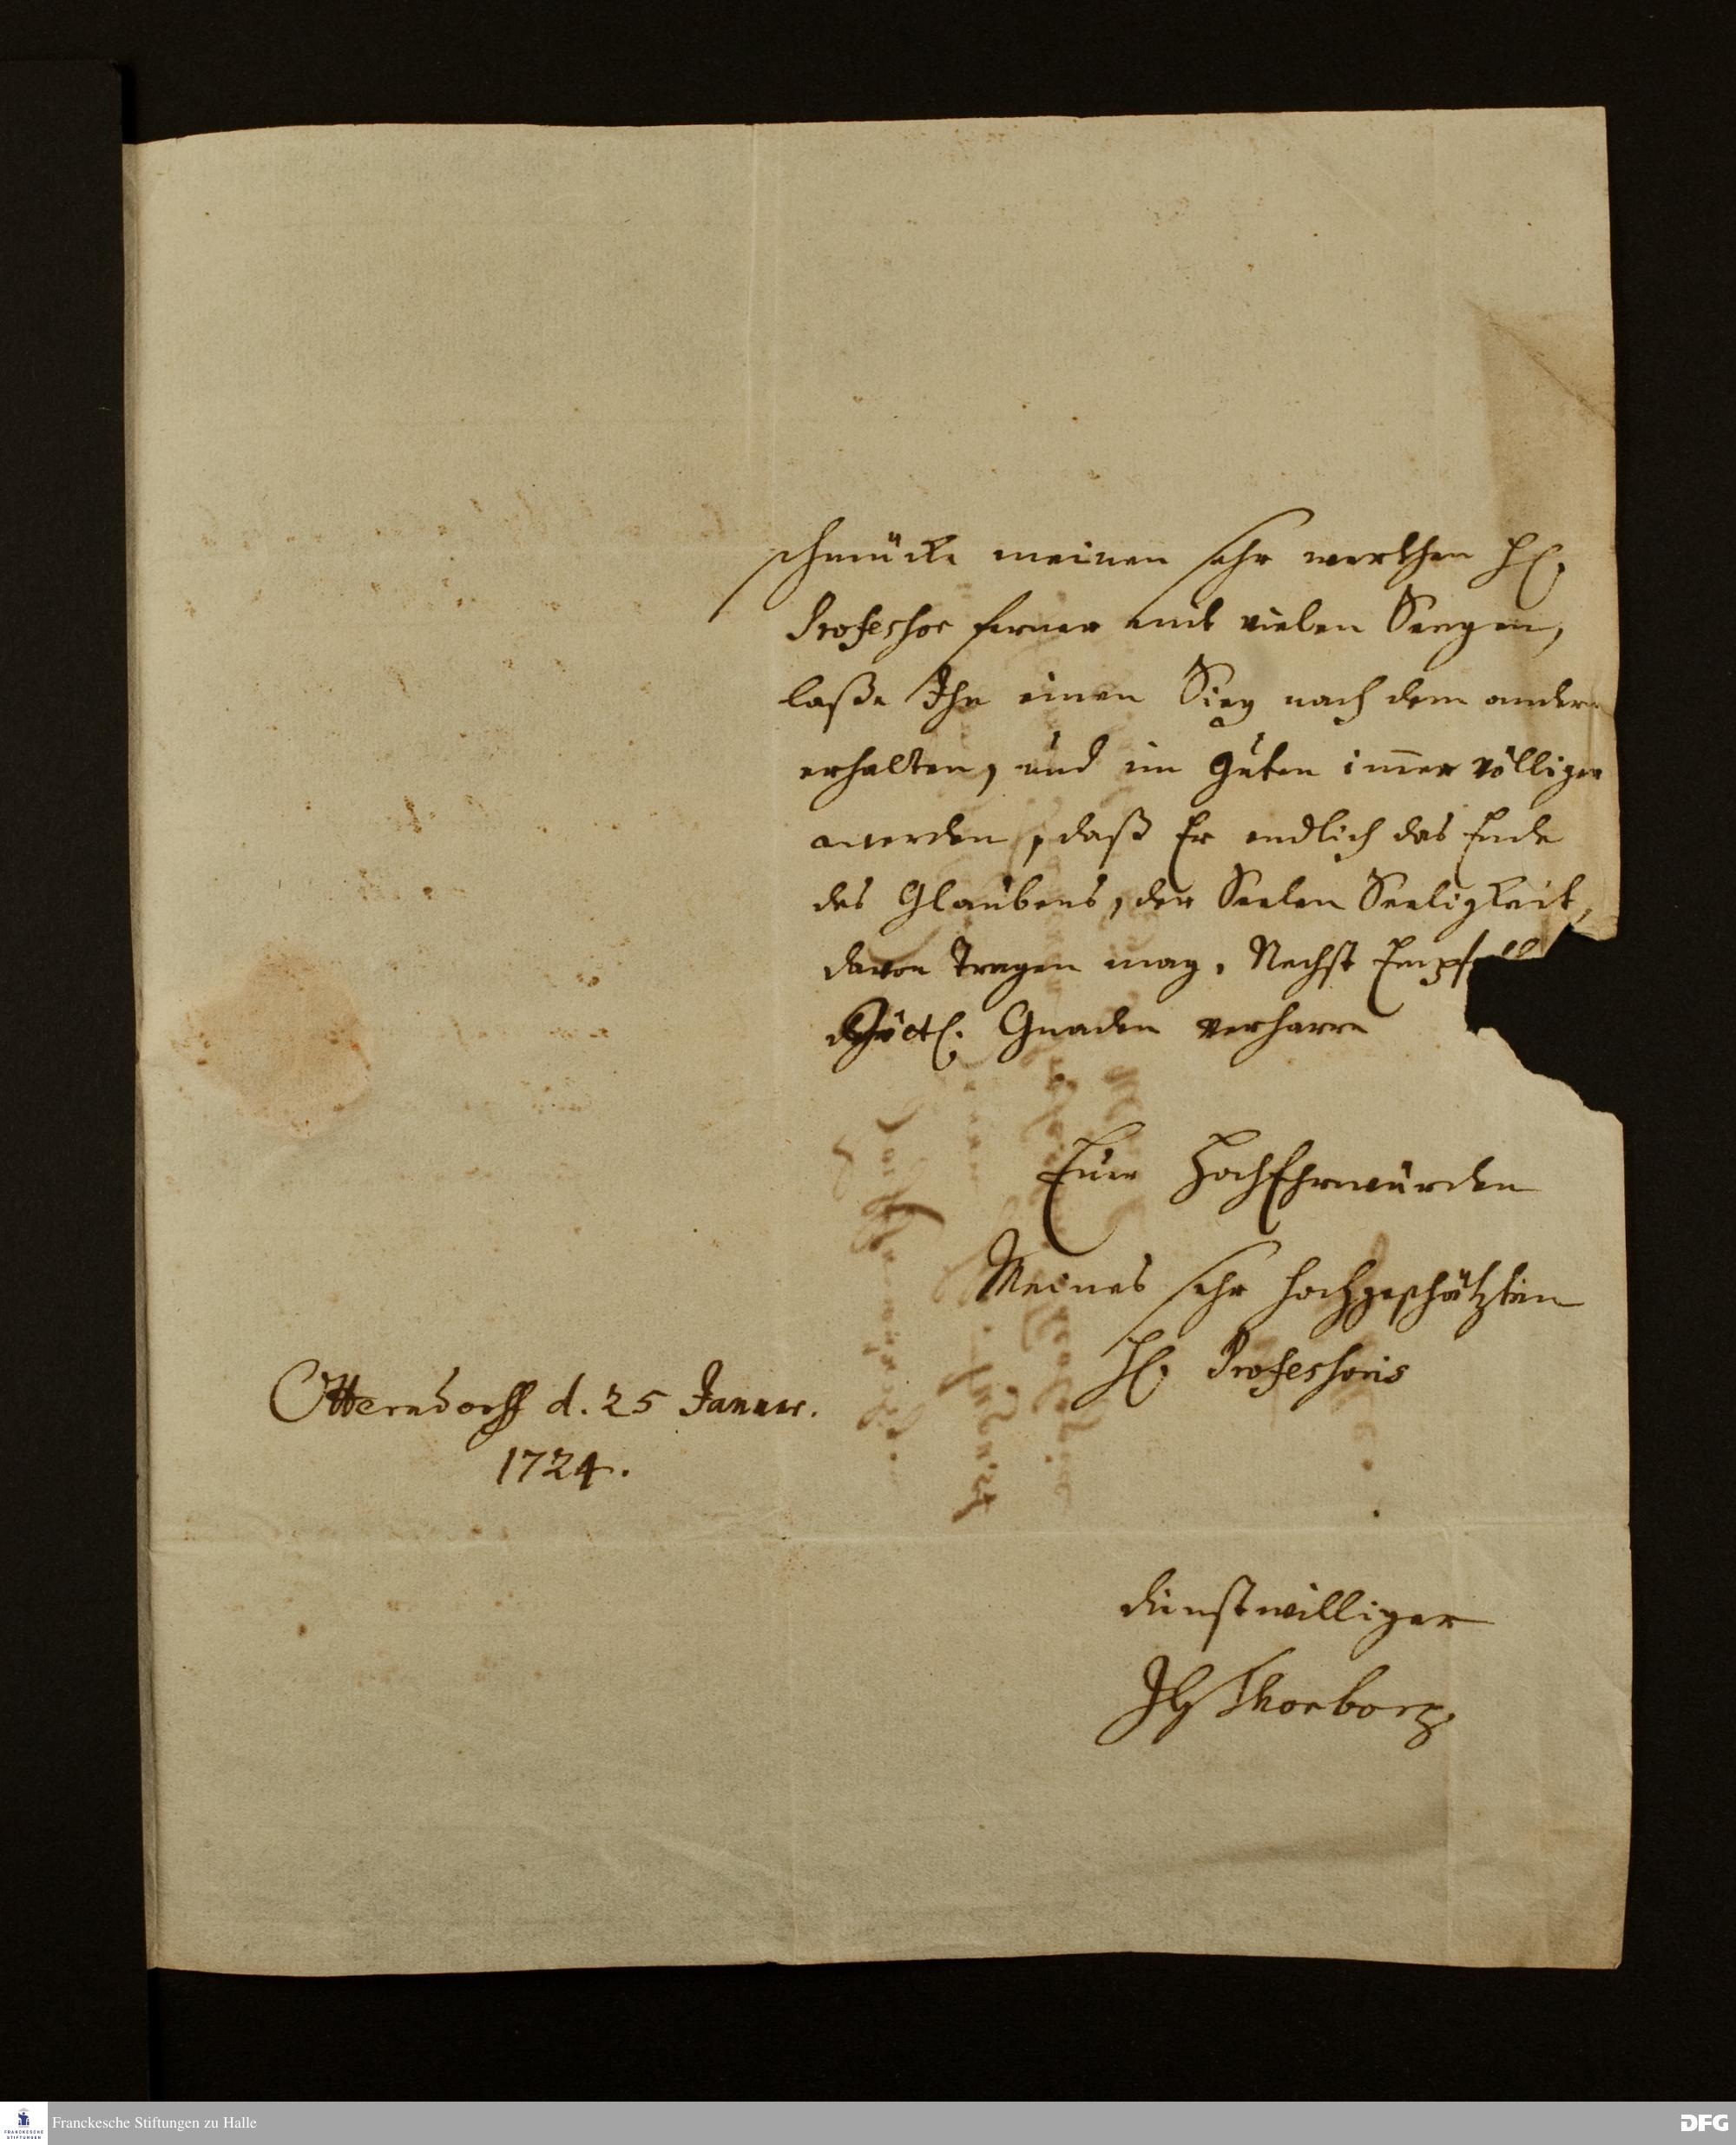 schmücke meinen sehr werthen H.
Professor ferner mit vielen Seegen,
laße Ihn einen Sieg nach dem andern
erhalten, und im Guten im̄er völliger
werden, daß Er endlich das Ende
des Glaubens, der Seelen Seeligkeit,
davon tragen mag. Nechst
Göttl. Gnaden verharre
Eure HochEhrwürden
Meines sehr hochgeschätzten
H. Professoris
Otterndorff d. 25 Januar.
1724.
dienstwilliger
JH Thorborg.
Franckesche Stiftungen zu Halle
FRANCKESCHE
STIFTUNGEN
DFG